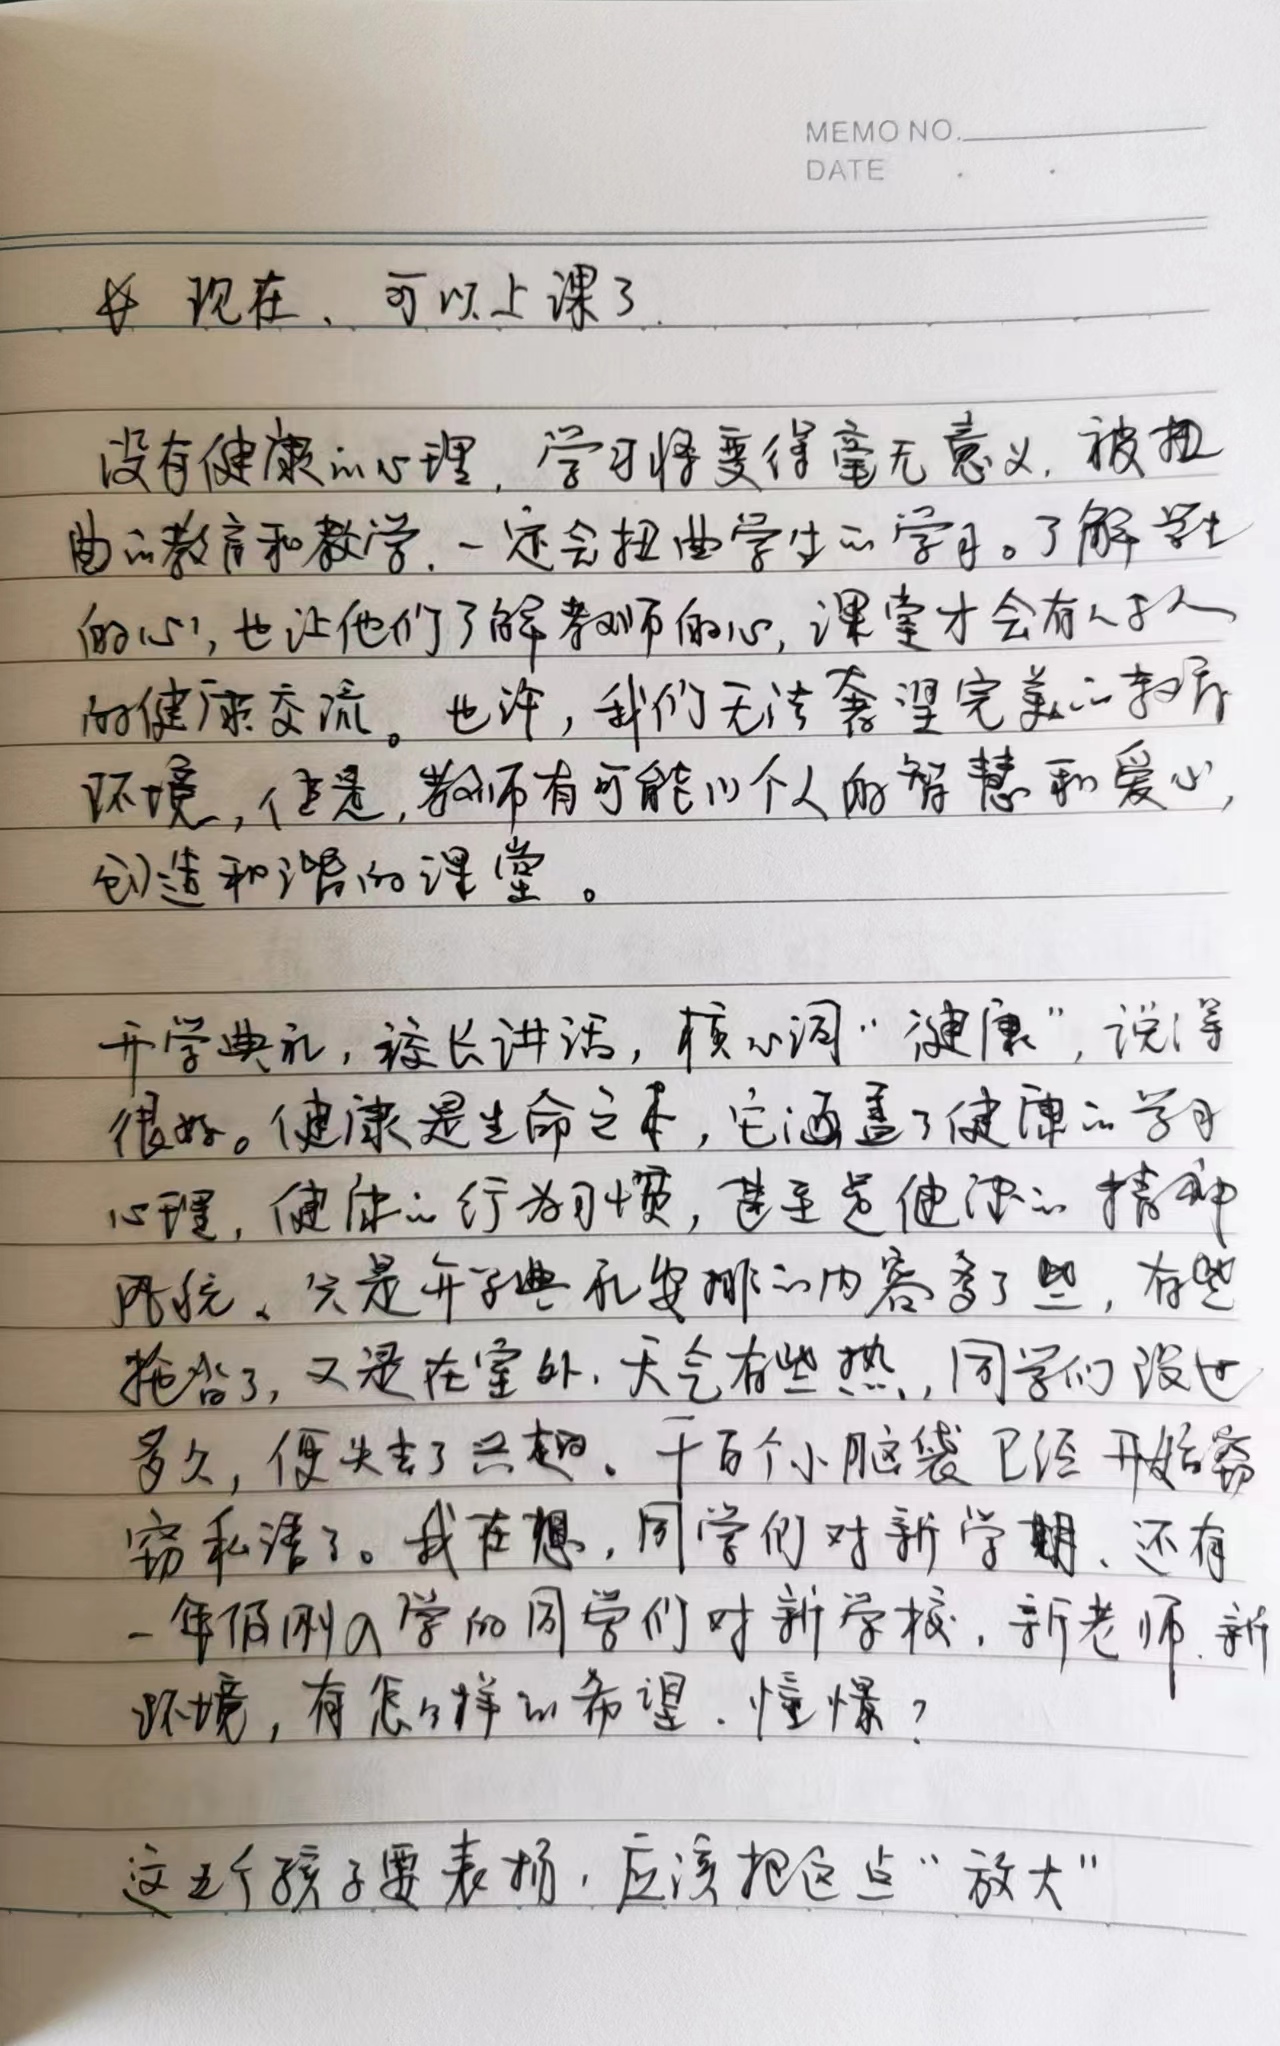 MEMO NO.
DATE . .
☆ 现在、可以上课了.
没有健康的心理，学习将变得毫无意义，被扭
曲的教育和教学，一定会扭曲学生的学习。了解学生
的心，也让他们了解教师的心，课堂才会有人与人
的健康交流。也许，我们无法奢望完美的教育
环境，但是，教师有可能以个人的智慧和爱心，
创造和谐的课堂。
开学典礼，校长讲话，核心词“健康”，说得
很好。健康是生命之本，它涵盖了健康的学习
心理，健康的行为习惯，甚至是健康的精神
系统、只是开学典礼安排的内容多了些，有些
拖沓了，又是在室外，天气有些热，同学们没过
多久，便失去了兴趣。千百个小脑袋已经开始窃
窃私语了。我在想，同学们对新学期、还有
一年级刚入学的同学们对新学校，新老师、新
环境，有怎么样的希望、憧憬？
这五个孩子要表扬，应该把这点“放大”